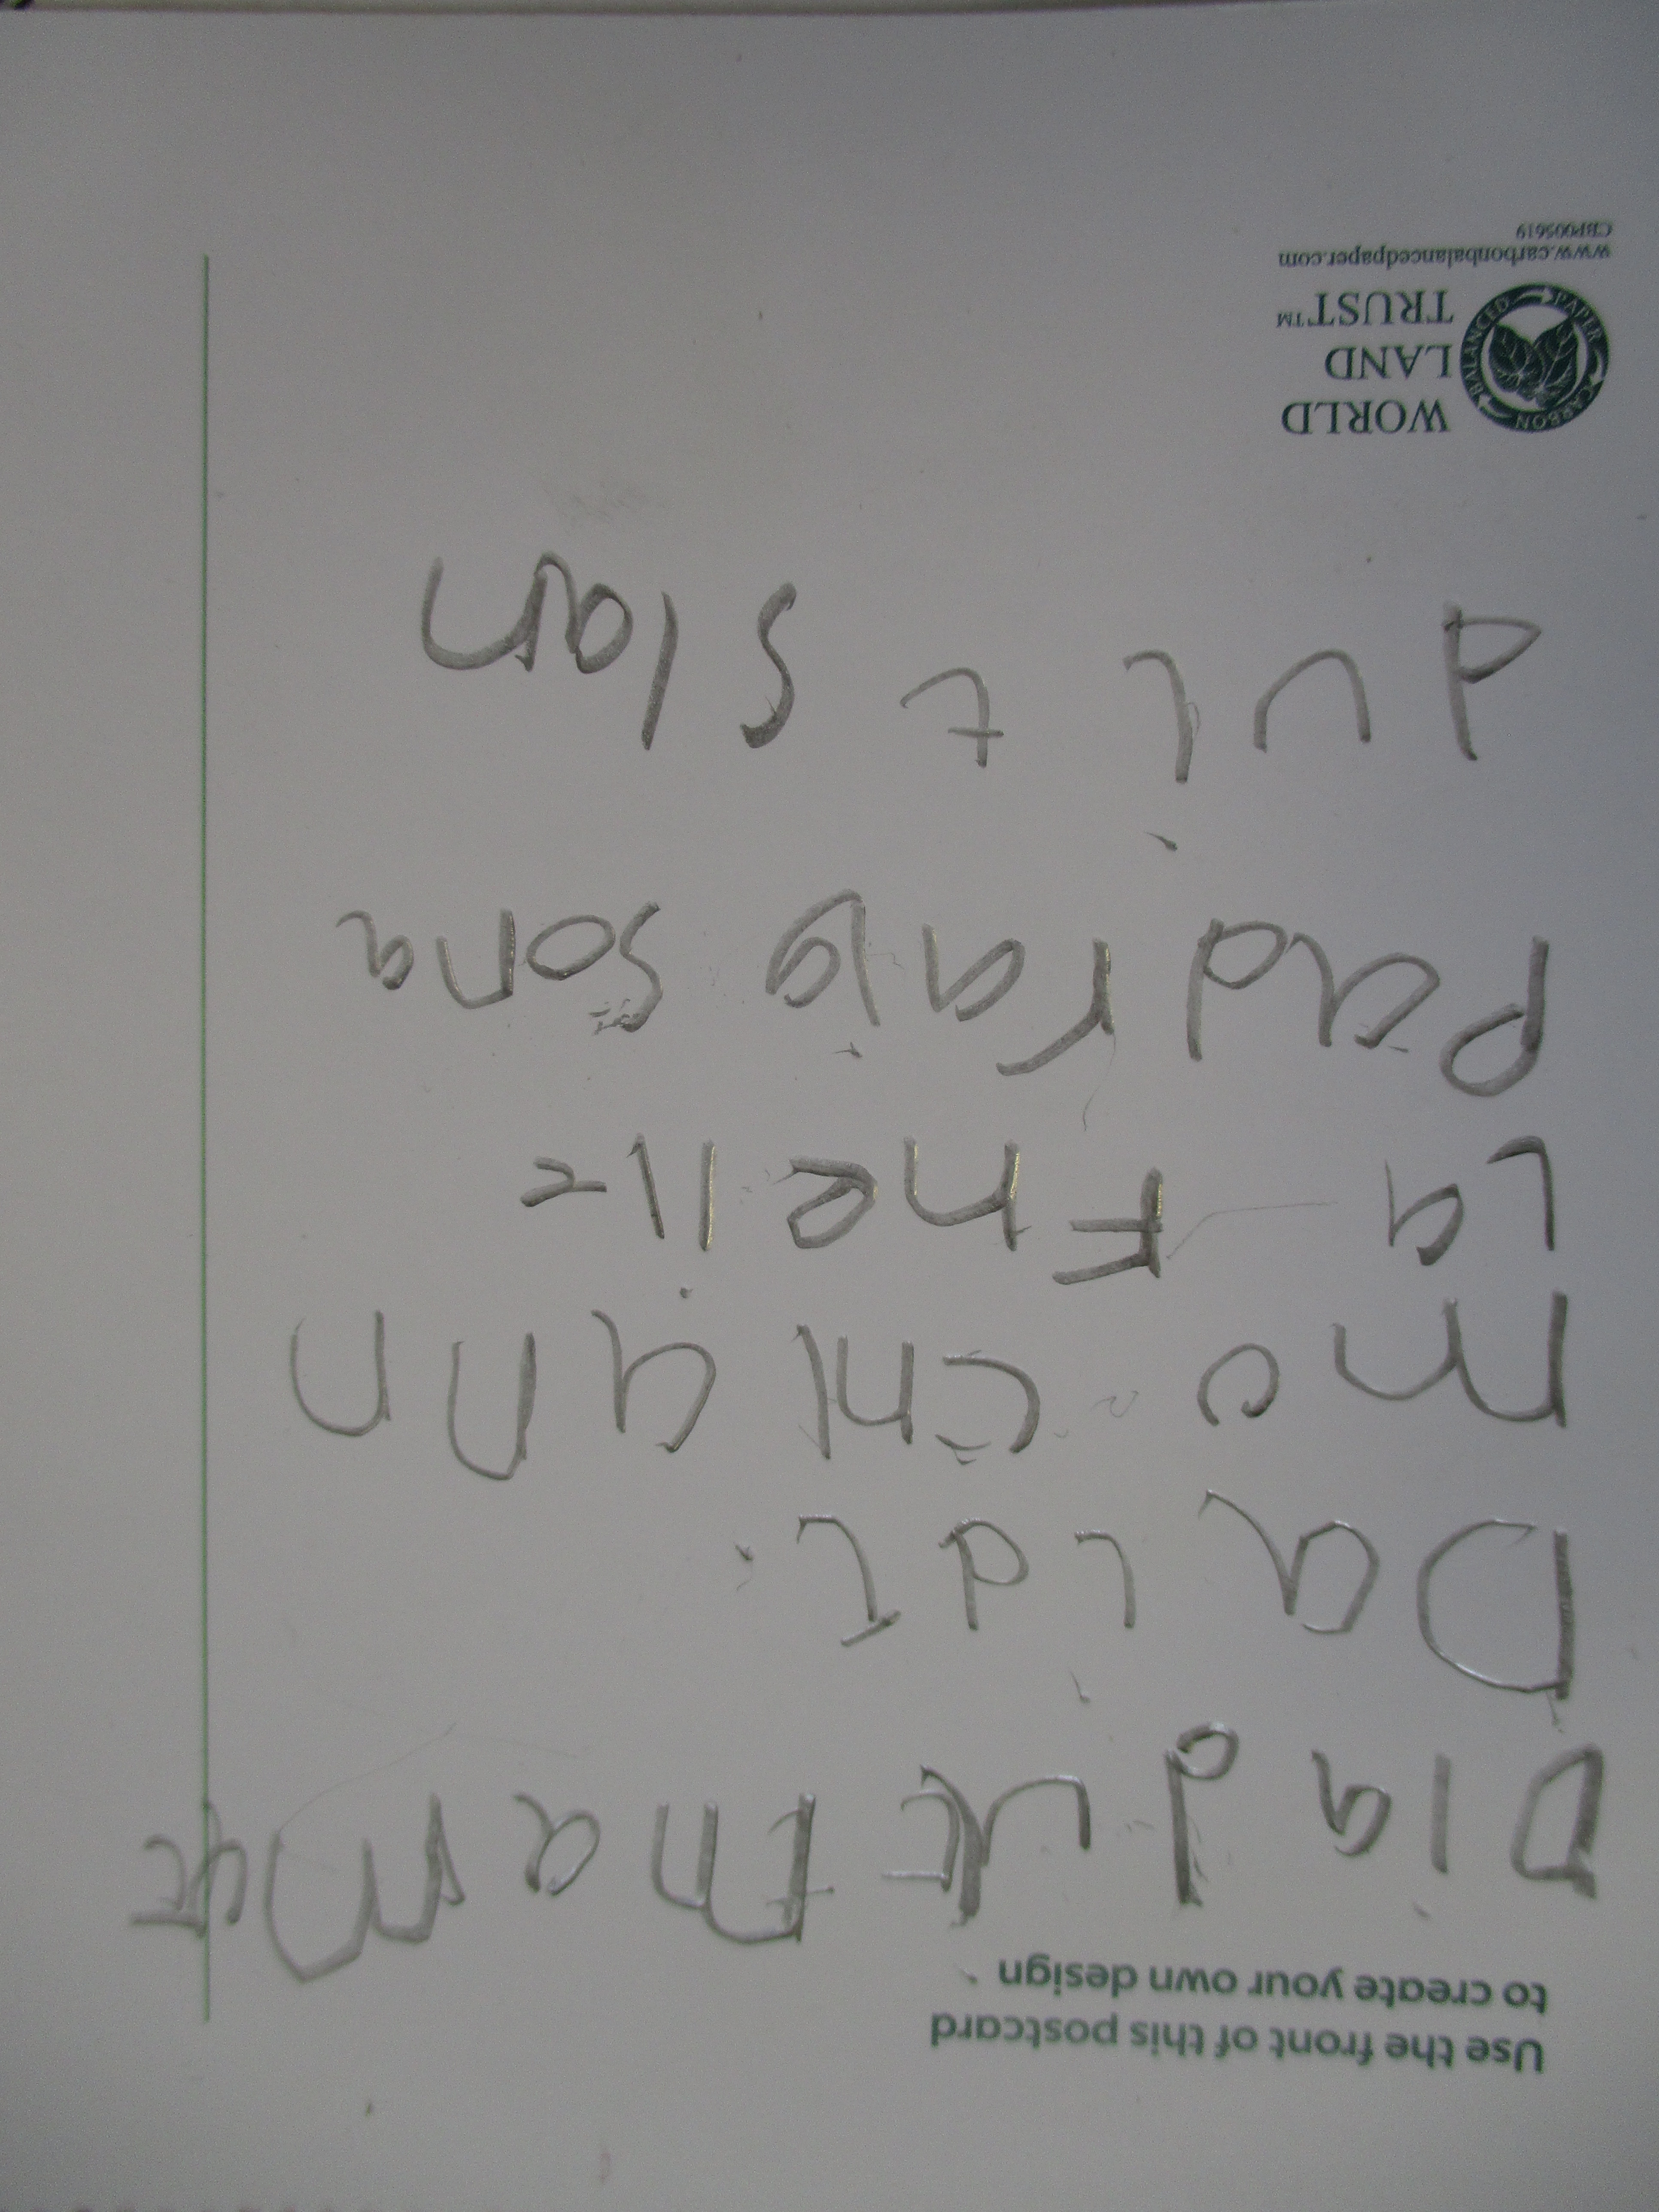 Use the front of this postcard
to create your own design
Dia duit mamaí
Daidí
mo chlann
La Fheile
Padraig sona
duit slan
WORLD
LAND
TRUST™
CARBON BALANCED PAPER
www.carbonbalancedpaper.com
CBP005619